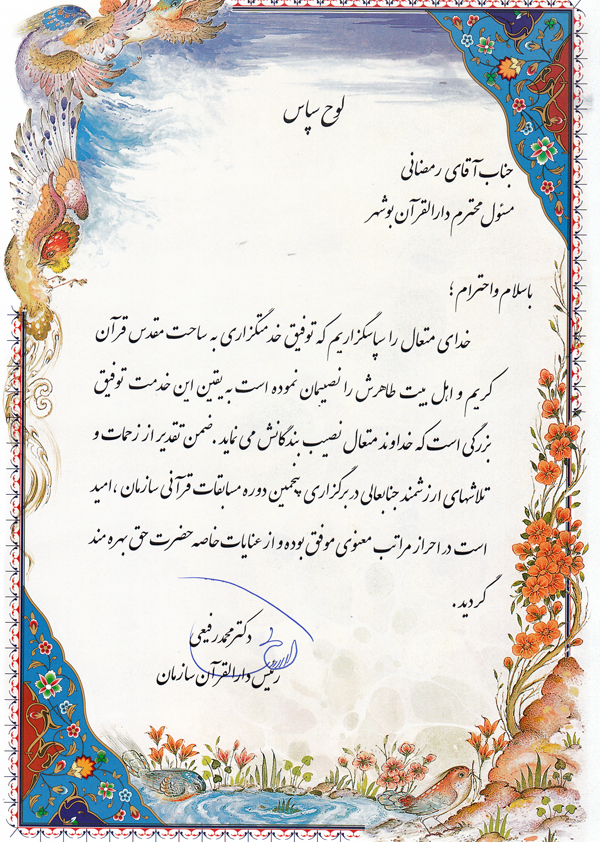 لوح سپاس
جناب آقای رمضانی
مسئول محترم دارالقرآن بوشهر
باسلام واحترام ؛
خدای متعال را سپاسگزاریم که توفیق خدمتگزاری به ساحت مقدس قرآن
کریم و اهل بیت طاهرش را نصیبمان نموده است به یقین این خدمت توفیق
بزرگی است که خداوند متعال نصیب بندگانش می نماید . ضمن تقدیر از زحمات و
تلاشهای ارزشمند جنابعالی در برگزاری پنجمین دوره مسابقات قرآنی سازمان ، امید
است در احراز مراتب معنوی موفق بوده و از عنایات خاصه حضرت حق بهره مند
گردید .
دکتر محمد رفیعی
رئیس دارالقرآن سازمان